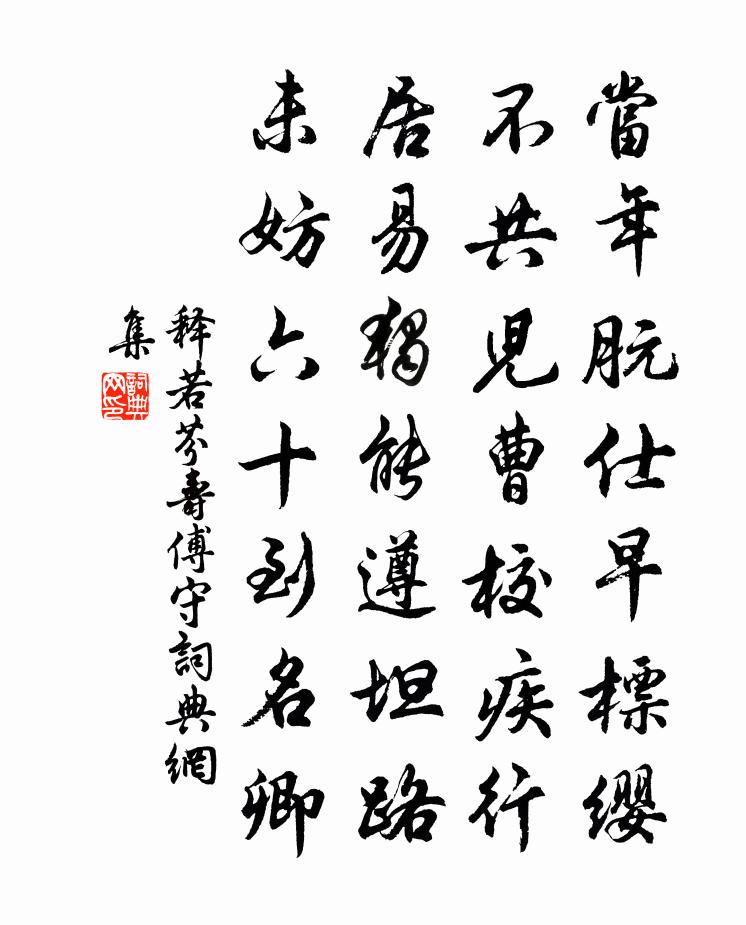 當年朊仕早標纓
不共兒曹校疾行
居易獨能遵坦路
未妨六十到名卿
释若芬壽傅守詞典網
集
詞典
网印